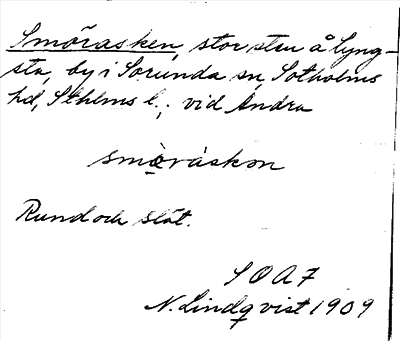 Smörasken, stor sten å Lyng-
sta, by i Sorunda sn, Sotholms
hd, Sthlms l.; vid Andra
smöråskon
Rund och slät.
S O A 7
N. Lindqvist 1909